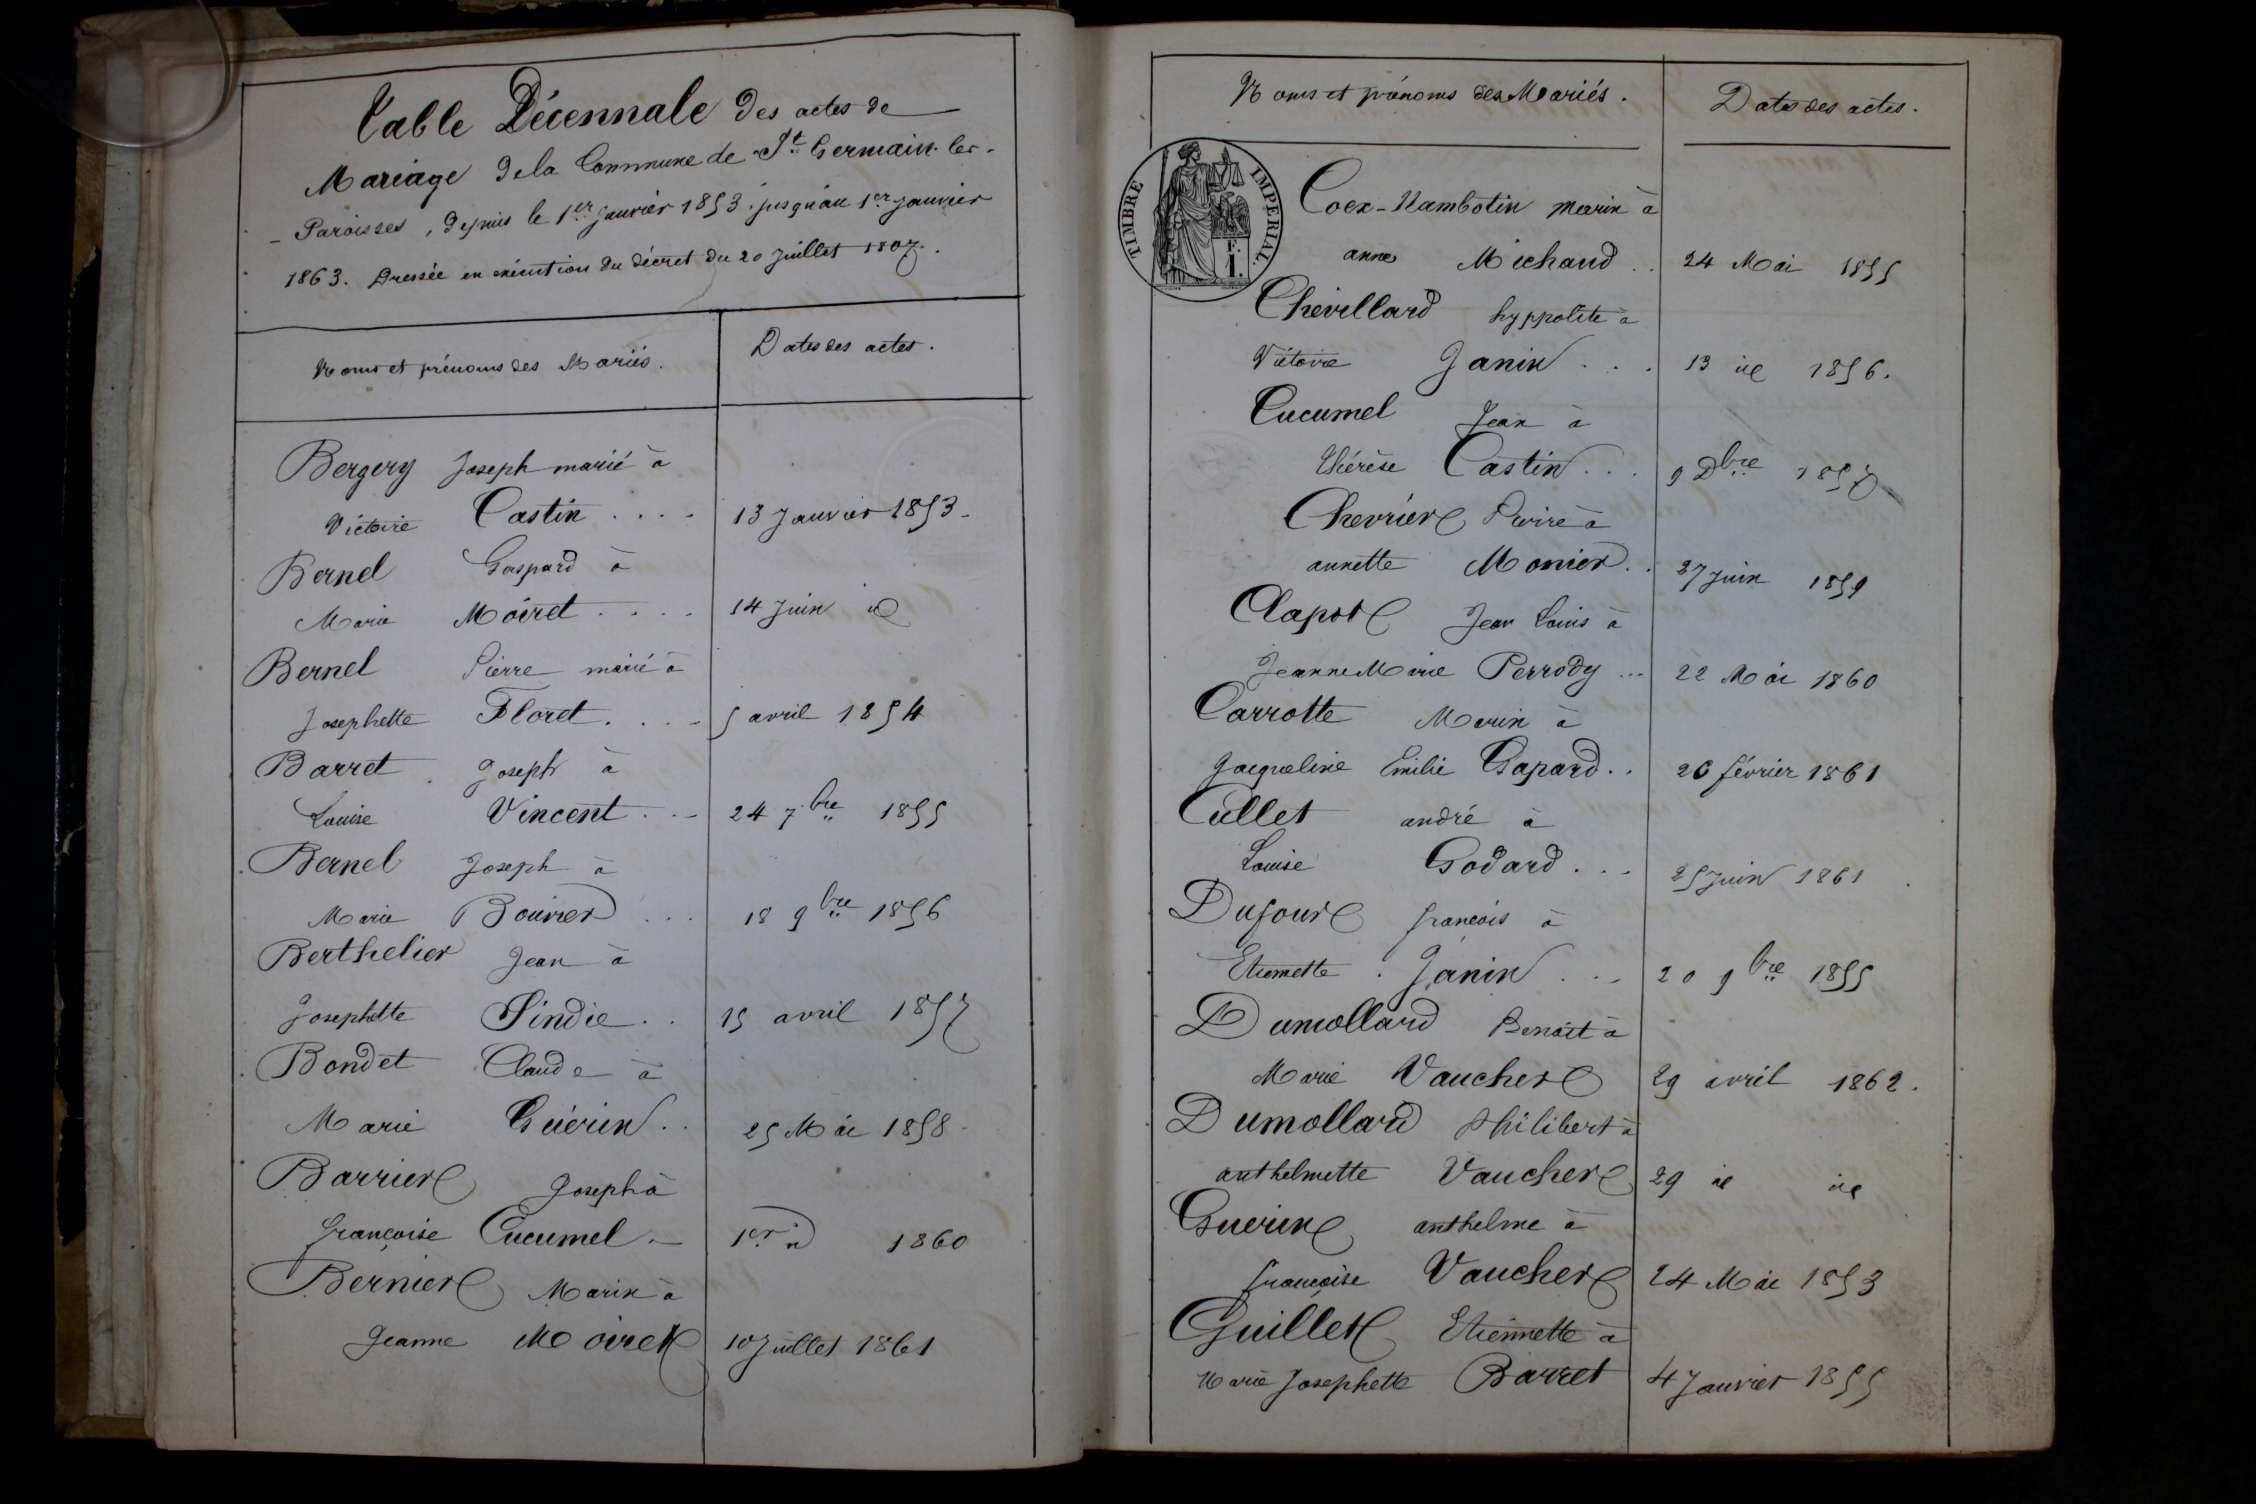 Table Décennale des actes de
Mariage de la Commune de St Germain-les-
- Paroisses, depuis le 1er janvier 1853 jusqu'au 1er janvier
1863. Dressée en exécution du décret du 20 Juillet 1807.
Noms et prénoms des Mariés.
Dates des actes.
Bergery Joseph marié à
Victoire Castin .... 13 Janvier 1853.
Bernel Gaspard à
Marie Moiret .... 14 Juin id
Bernel Pierre marié à
Josephette Floret .... 5 avril 1854
Barret Joseph à
Louise Vincent ... 24 7bre 1855
Bernel Joseph à
Marie Bouvier ... 18 9bre 1856
Berthelier Jean à
Josephette Sindie .. 15 avril 1857
Bondet Claude à
Marie Guérin .. 25 Mai 1858
Barrier Joseph à
françoise Cucumel 1er 1860
Bernier Marin à
Jeanne Moiret 10 Juillet 1861
Noms et prénoms des Mariés.
Dates des actes.
TIMBRE IMPERIAL.
Coex-Nambotin Marin à
anne Michaud .. 24 Mai 1855
Chevillard hyppolite à
Victoire Janin ... 13 id 1856.
Cucumel Jean à
Thérèse Castin ... 9 Dbre 1857
Chevrier à
annette Monier .. 27 juin 1859
Clapot Jean Louis à
Jeanne Marie Perrody ... 22 Mai 1860
Carrotte Marin à
Jacqueline Emilie Gapard .. 26 février 1861
Cullet andré à
Louise Godard ... 25 juin 1861
Dufour françois à
Etiennette Janin ... 20 9bre 1855
Dumollard Benoît à
Marie Vaucher 29 avril 1862.
Dumollard Philibert à
anthelmette Vaucher 29 id id
Guerin anthelme à
françoise Vaucher 24 Mai 1853
Guillet Etiennette à
Marie Josephette Barret 4 Janvier 1855